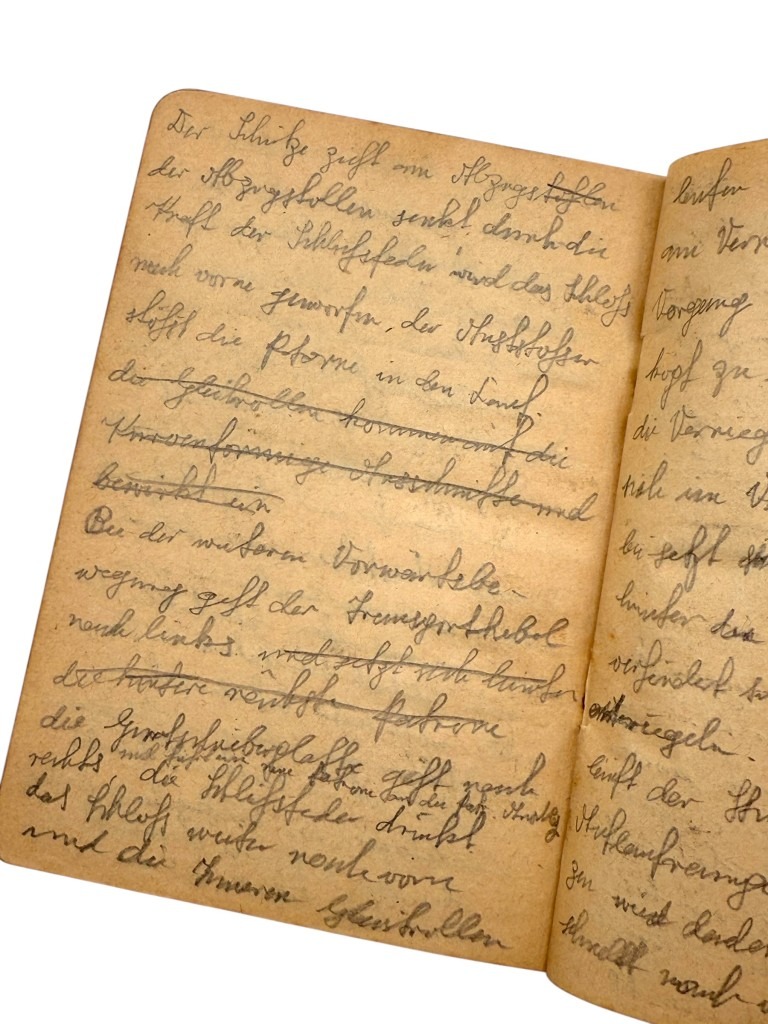 Der Schütze zieht am Abzugstollen
der Abzugstollen senkt, durch die
Kraft der Schließfeder wird das Schloß
nach vorne geworfen, der Ausstosser
stößt die Patrone in den Lauf.
die Gleitrollen kommen auf die
Kurvenförmige Ausschnitte und
bewirkt ein
Bei der weiteren Vorwärtsbe-
wegung geht der Transporthebel
nach links. und setzt sich hinter
die hintere nächste Patrone
die Gurtschieberplatte geht nach
und führt eine neue Patrone an die Patr.
rechts, die Schließfeder drückt
das Schloß weiter nach vorn
und die Inneren Gleitrollen
laufen
am Verr
Vorgang
kopf zu
die Verrieg
sich im V
bei setzt
hinter die
verhindert
entriegeln.
läuft der
Auflauf
gen wird
schnellt nach